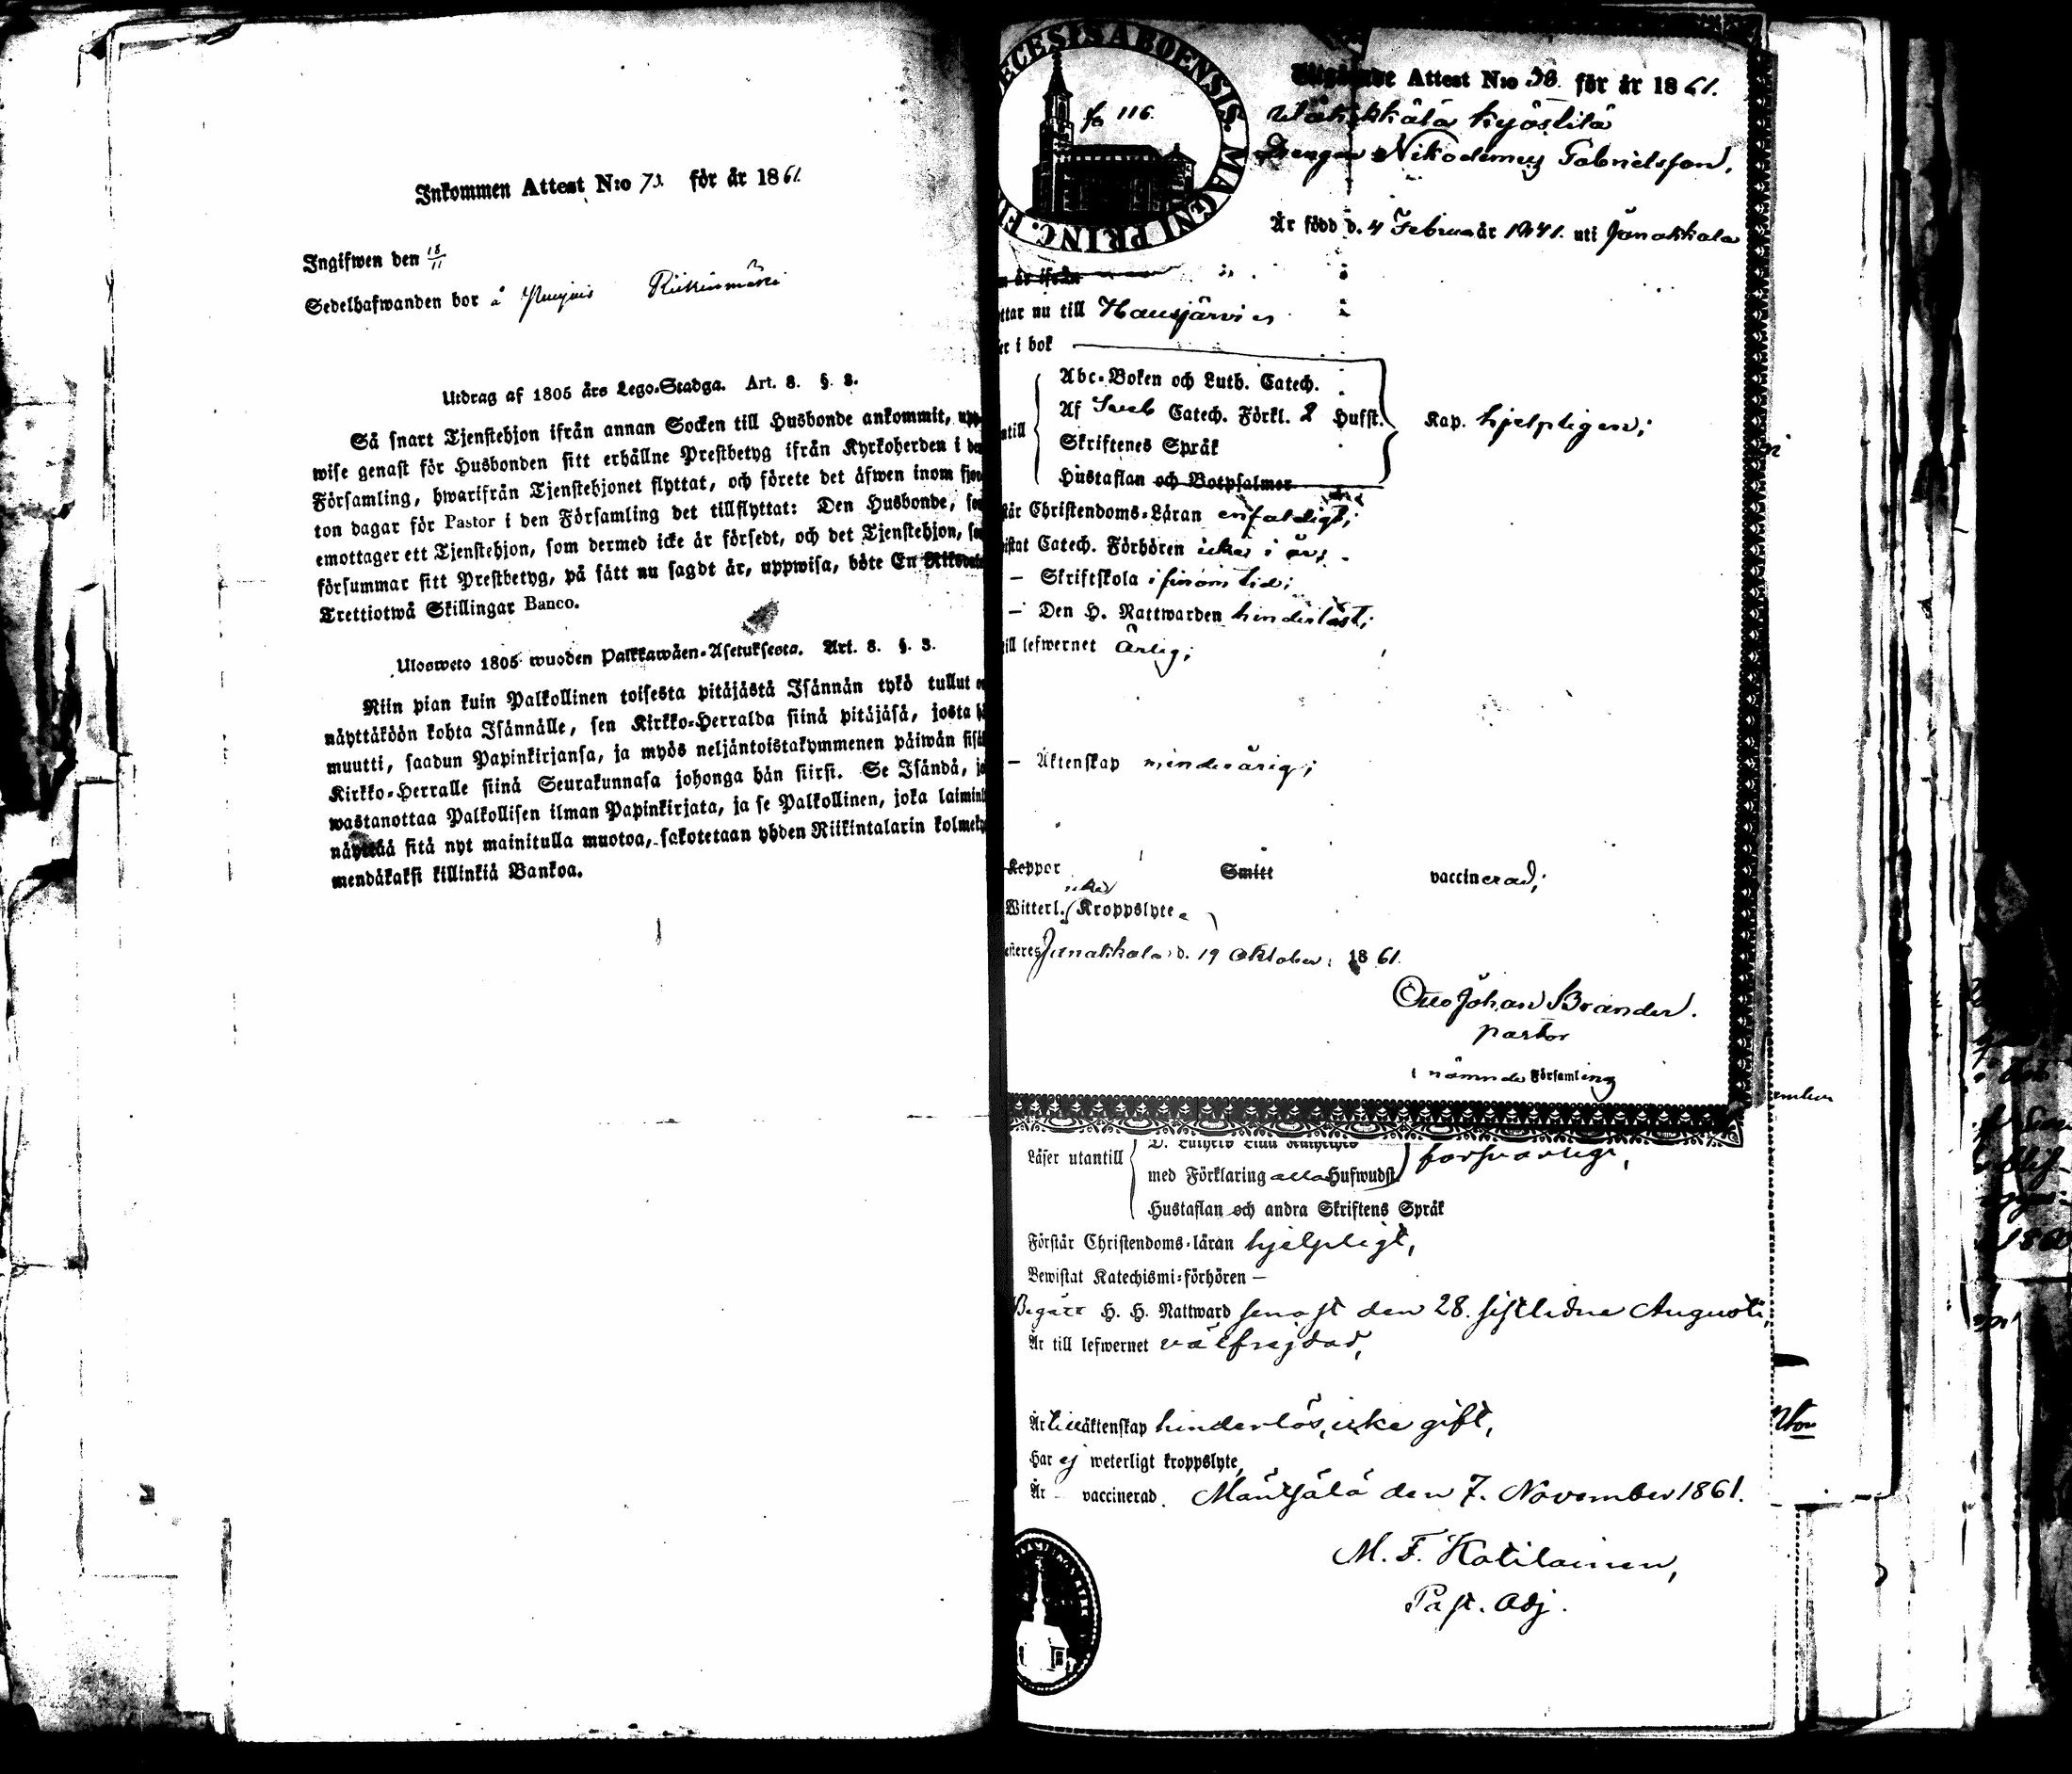 Inkommen Attest N:o 73. för år 1861.
Ingifwen den 18/11
Sedelhafwanden bor å Riikinmäki
Utdrag af 1805 års Lego-Stadga. Art. 8. §. 3.
Så snart Tjenstehjon ifrån annan Socken till Husbonde ankommit, upp-
wise genast för Husbonden sitt erhållne Prestbetyg ifrån Kyrkoherden i den
Församling, hwarifrån Tjenstehjonet flyttat, och förete det äfwen inom fjor
ton dagar för Pastor i den Församling det tillflyttat: Den Husbonde, som
emottager ett Tjenstehjon, som dermed icke är försedt, och det Tjenstehjon, som
försummar sitt Prestbetyg, på sätt nu sagdt är, uppwisa, böte En Riksdaler
Trettiotwå Skillingar Banco.
Ulosweto 1805 wuoden Palkkawäen-Asetuksesta. Art. 8. §. 3.
Niin pian kuin Palkollinen toisesta pitäjästä Isännän tykö tullut on
näyttäköön kohta Isännälle, sen Kirkko-Herralda siinä pitäjäsä, josta hän
muutti, saadun Papinkirjansa, ja myös neljäntoistakymmenen päiwän sisäl
Kirkko-Herralle siinä Seurakunnasa johonga hän siirsi. Se Isändä, jo
wastanottaa Palkollisen ilman Papinkirjata, ja se Palkollinen, joka laimin
näyttää sitä nyt mainitulla muotoa, sakotetaan yhden Riikintalarin kolmeky
mendäkaksi killinkiä Bankoa.
ECESIS ABOENSIS. MAGNI PRINC. FI
fo 116.
Utgående Attest N:o 36. för år 1861.
Kyöstilä
Drengen Nikodemus Gabrielsson,
Är född d. 4 Februar år 1841. uti Janakkala
är ifrån
ttar nu till Hausjärvi
er i bok
Abc-Boken och Luth. Catech.
Af Sveb Catech. Förkl. 2 Hufst. Kap. hjelpligen;
ntill
Skriftenes Språk
Hustaflan och Botpsalmer
står Christendoms-Läran enfaldigt;
istat Catech. Förhören icke i år;
— Skriftskola i sinom tid;
— Den H. Nattwarden hinderlöst;
till lefwernet ärlig;
— Äktenskap minderårig;
Koppor Smitt vaccinerad;
icke
Witterl. Kroppslyte
esteres Janakkala d. 19 Oktober 1861.
Otto Johan Brander.
pastor
i nämnde Församling
D. Luthers Lilla Katheches
Läser utantill
med Förklaring alla Hufwudst. försvarligt,
Hustaflan och andra Skriftens Språk
Förstår Christendoms-läran hjelpligt,
Bewistat Katechismi-förhören —
Begått H. H. Nattward senast den 28. sistlidne Augusti,
Är till lefwernet välfrejdad,
Är till äktenskap hinderlös, icke gift,
Har ej weterligt kroppslyte,
Är — vaccinerad. Mäntsälä den 7. November 1861.
M. F. Kotilainen,
Past. Adj.